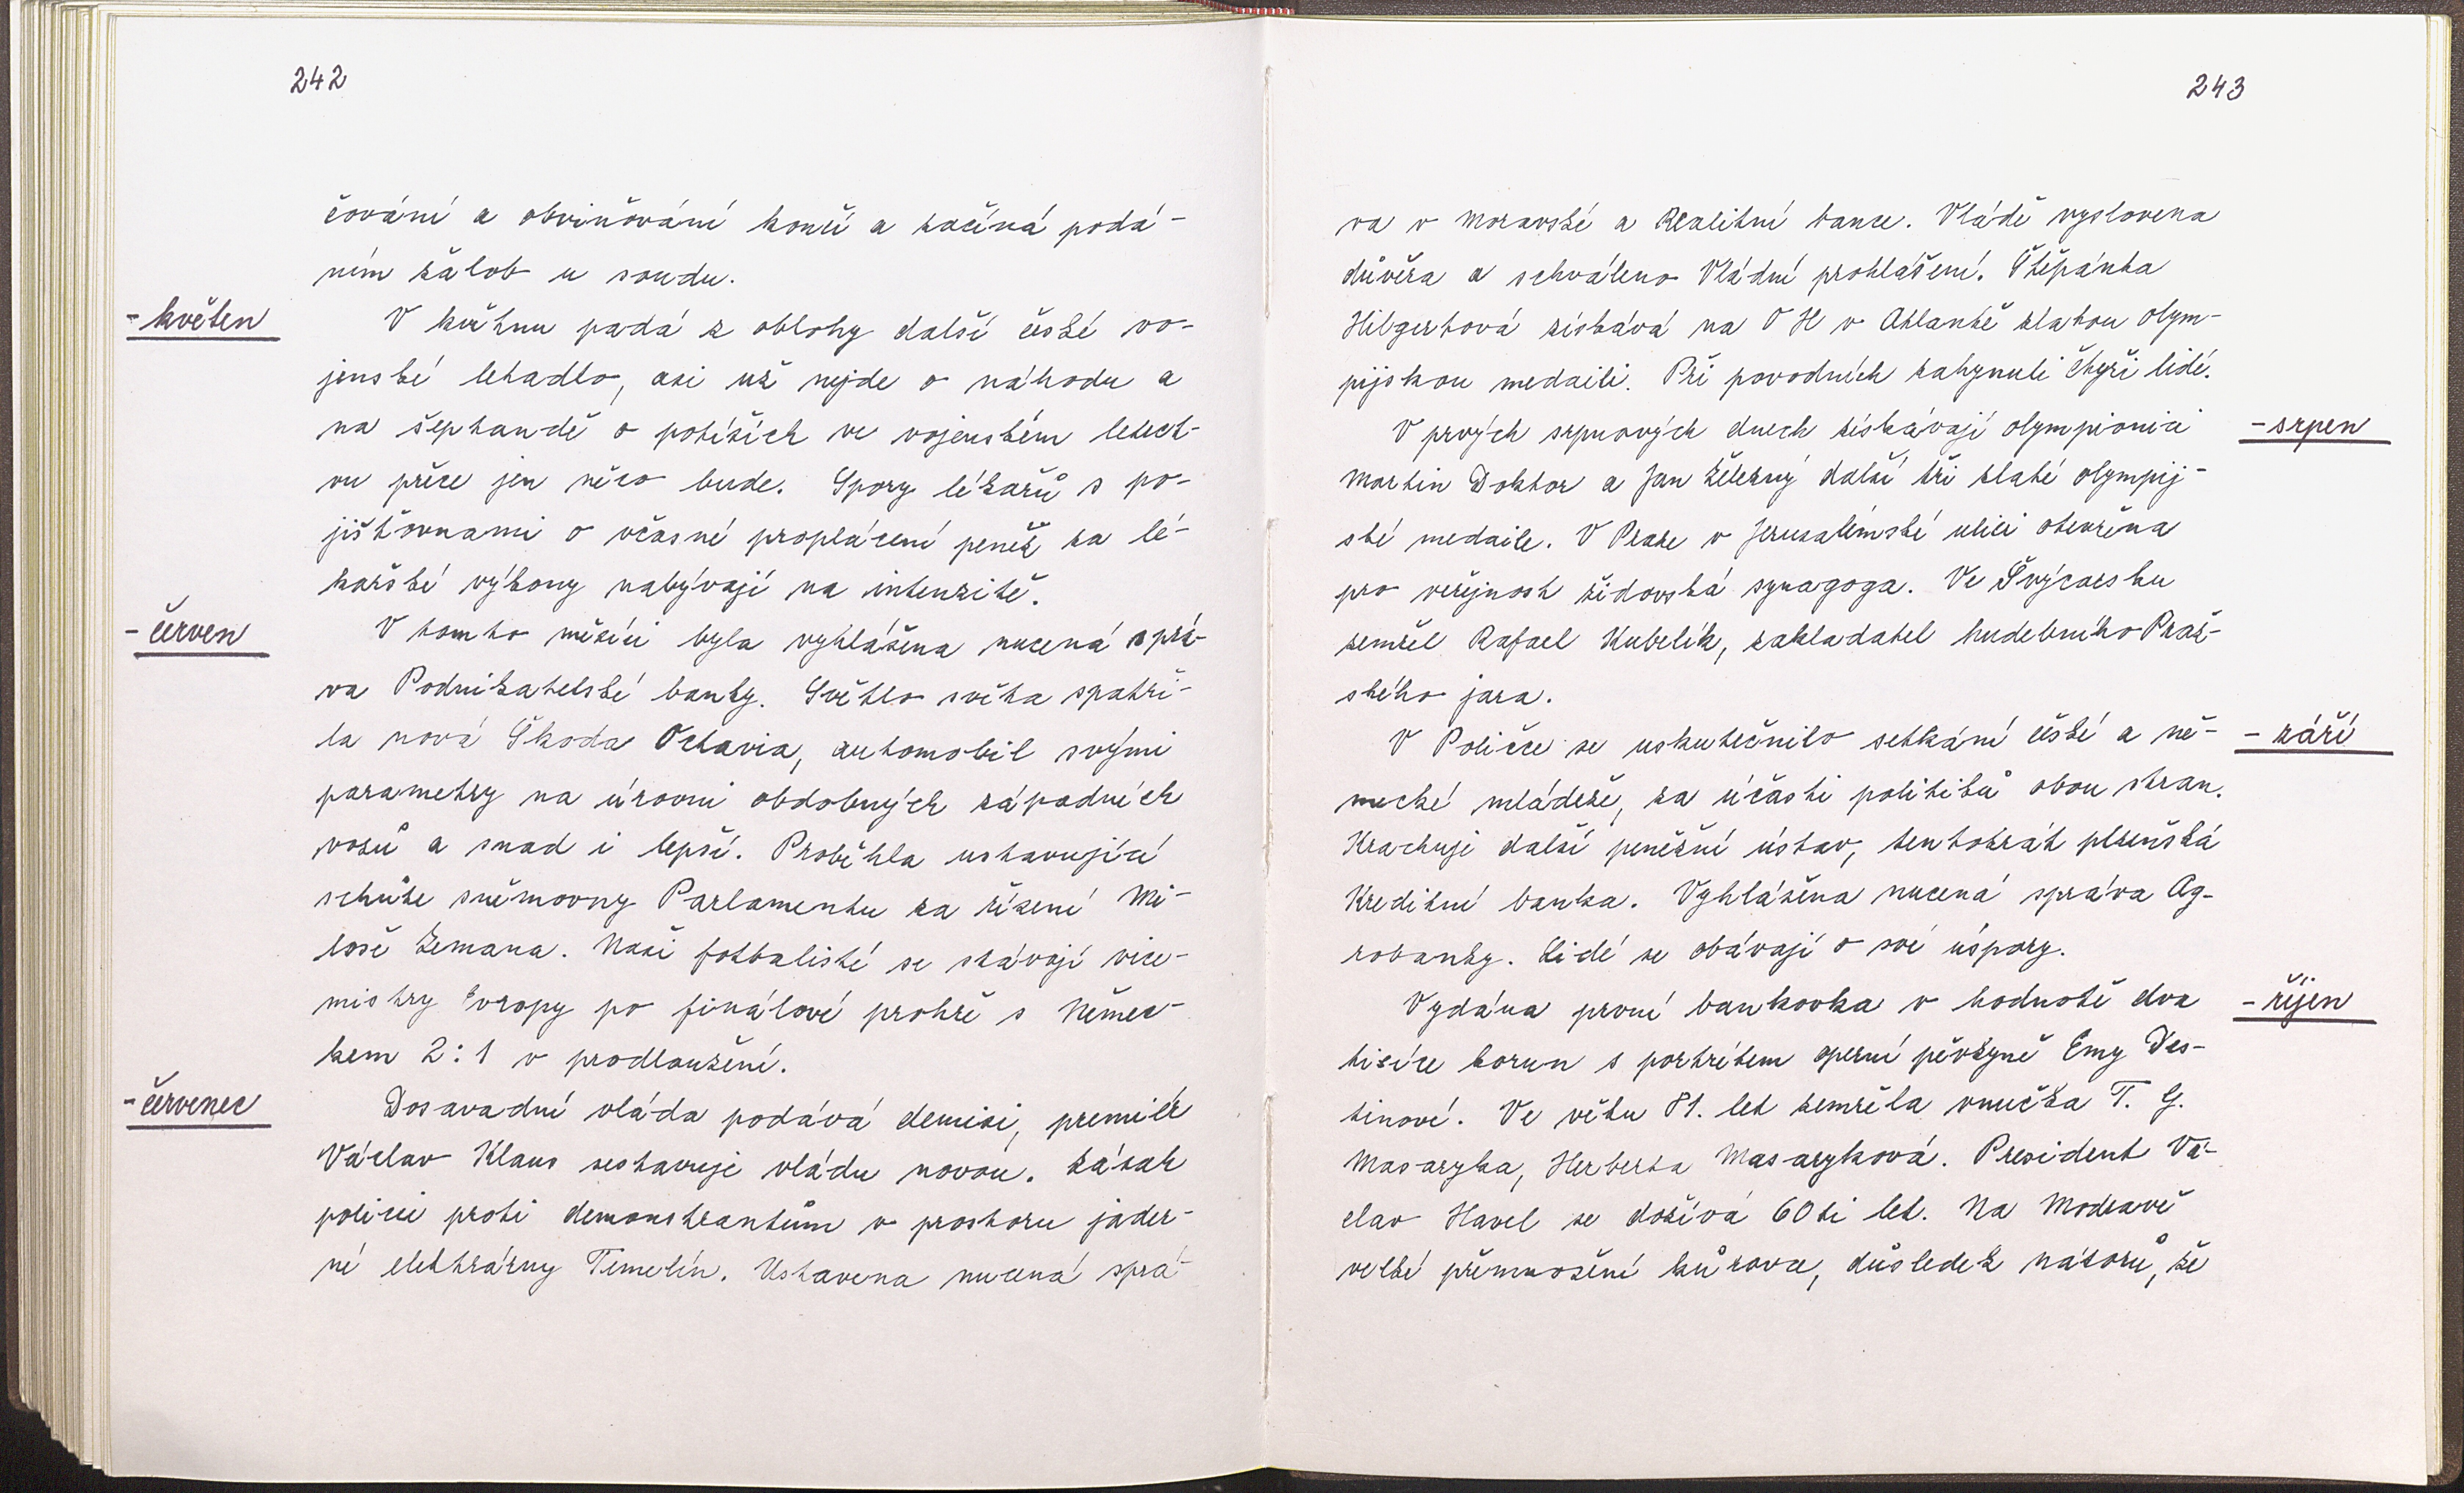 242
čování a obviňování končí a začíná podá-
ním žalob u soudu.
- květen
V květnu padá z oblohy další české vo-
jenské letadlo, asi už nejde o náhodu a
na šeptandě o potížích ve vojenském letect-
vu přece jen něco bude. Spory lékařů s po-
jišťovnami o včasné proplácení peněz za lé-
kařské výkony nabývají na intenzitě.
- červen
V tomto měsíci byla vyhlášena nucená sprá-
va Podnikatelské banky. Světlo světa spatři-
la nová Škoda Octavia, automobil svými
parametry na úrovni obdobných západních
vozů a snad i lepší. Proběhla ustavující
schůze sněmovny Parlamentu za řízení Mi-
loše Zemana. Naši fotbalisté se stávají vice-
mistry Evropy po finálové prohře s Němec-
kem 2:1 v prodloužení.
- červenec
Dosavadní vláda podává demisi, premiér
Václav Klaus sestavuje vládu novou. Zásah
policie proti demonstrantům v prostoru jader-
né elektrárny Temelín. Ustavena nucená sprá-
243
va v Moravské a Realitní bance. Vládě vyslovena
důvěra a schváleno Vládní prohlášení. Štěpánka
Hilgertová získává na OH v Atlantě zlatou olym-
pijskou medaili. Při povodních zahynuli čtyři lidé.
- srpen
V prvých srpnových dnech získávají olympionici
Martin Doktor a Jan Železný další tři zlaté olympij-
ské medaile. V Praze v Jeruzalémské ulici otevřena
pro veřejnost židovská synagoga. Ve Švýcarsku
zemřel Rafael Kubelík, zakladatel hudebního Praž-
ského jara.
- září
V Poličce se uskutečnilo setkání české a ně-
mecké mládeže, za účasti politiků obou stran.
Krachuje další peněžní ústav, tentokrát plzeňská
Kreditní banka. Vyhlášena nucená správa Ag-
robanky. Lidé se obávají o své úspory.
- říjen
Vydána první bankovka v hodnotě dva
tisíce korun s portrétem operní pěvkyně Emy Des-
tinové. Ve věku 81. let zemřela vnučka T. G.
Masaryka, Herberta Masaryková. President Vá-
clav Havel se dožívá 60ti let. Na Modravě
velké přemnožení kůrovce, důsledek názorů, že